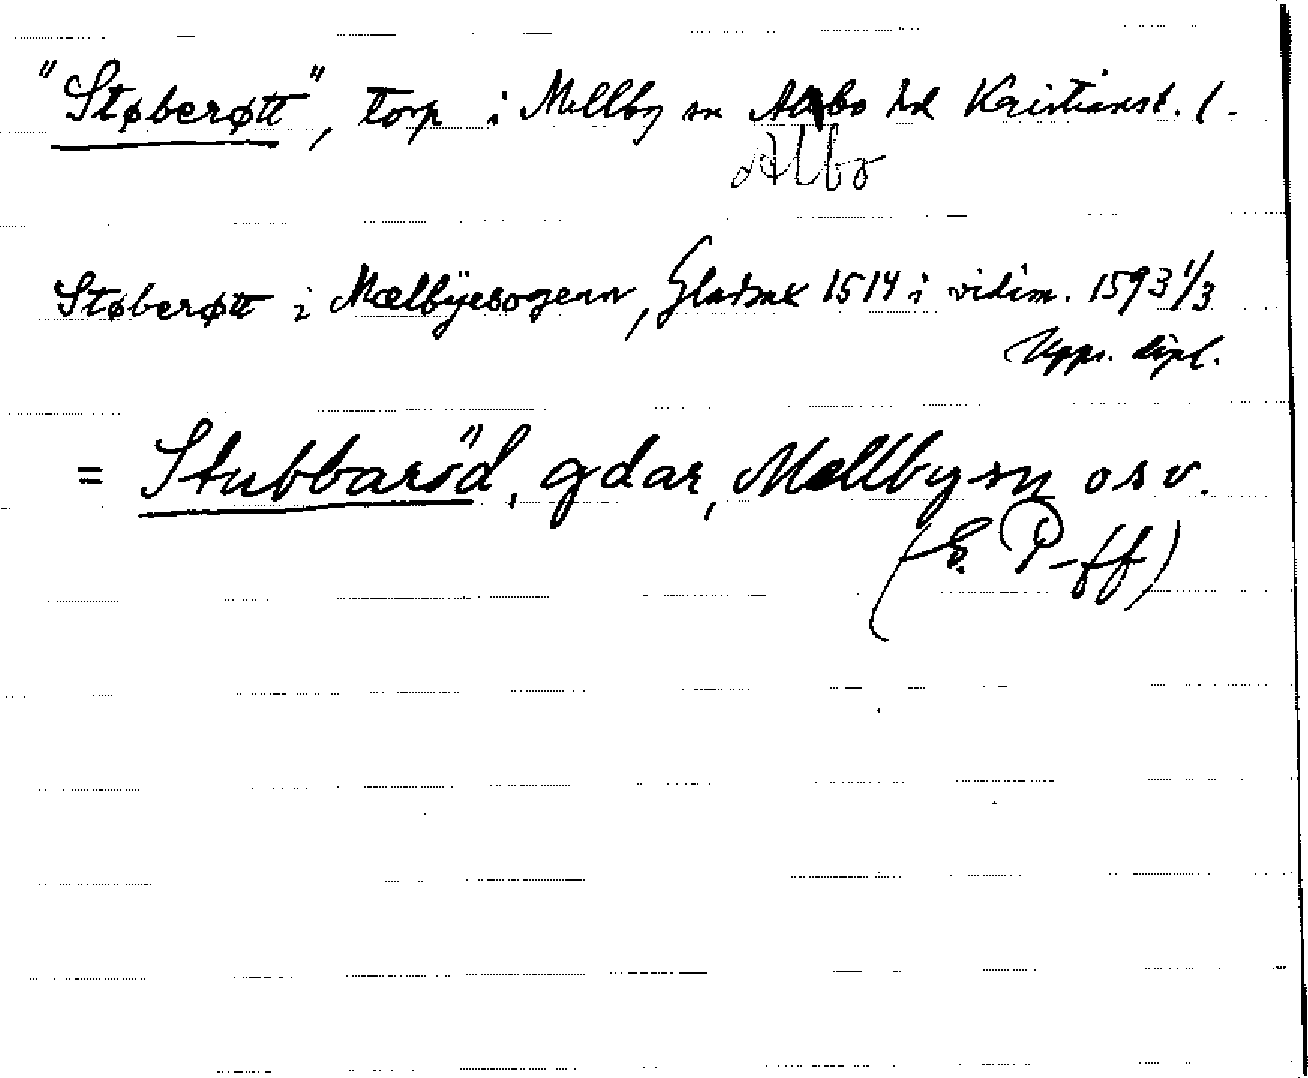 "Støberøtt", torp i Mellby sn Albo hd Kristianst. l.
Albo
Støberøtt i Mælbÿesogenn, Gladsax 1514 i vidim. 1593 1/3
Upps. dipl.
= Stubbaröd, gdar, Mellby sn osv.
(E. P-ff)